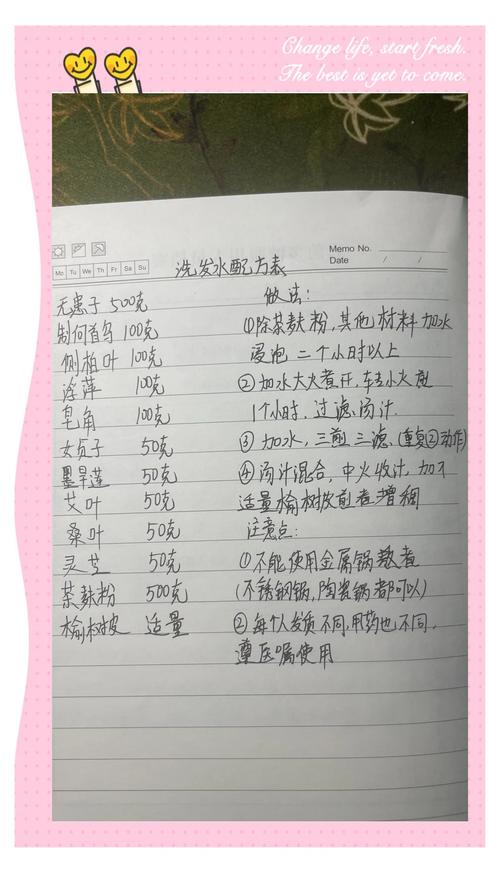 Change life, start fresh.
The best is yet to come.
Memo No.
Date / /
Mo Tu We Th Fr Sa Su
洗发水配方表
无患子 500克
制何首乌 100克
侧柏叶 100克
浮萍 100克
皂角 100克
女贞子 50克
墨旱莲 50克
艾叶 50克
桑叶 50克
灵芝 50克
茶麸粉 500克
榆树皮 适量
做法:
①除茶麸粉,其他材料加水
浸泡二个小时以上
②加水大火煮开,转小火煎
1个小时,过滤汤汁.
③加水,三煎三滤.(重复②动作)
④汤汁混合,中火收汁,加入
适量榆树皮煎煮增稠
注意点:
①不能使用金属锅熬煮
(不锈钢锅,陶瓷锅都可以)
②每个人发质不同,用药也不同,
遵医嘱使用